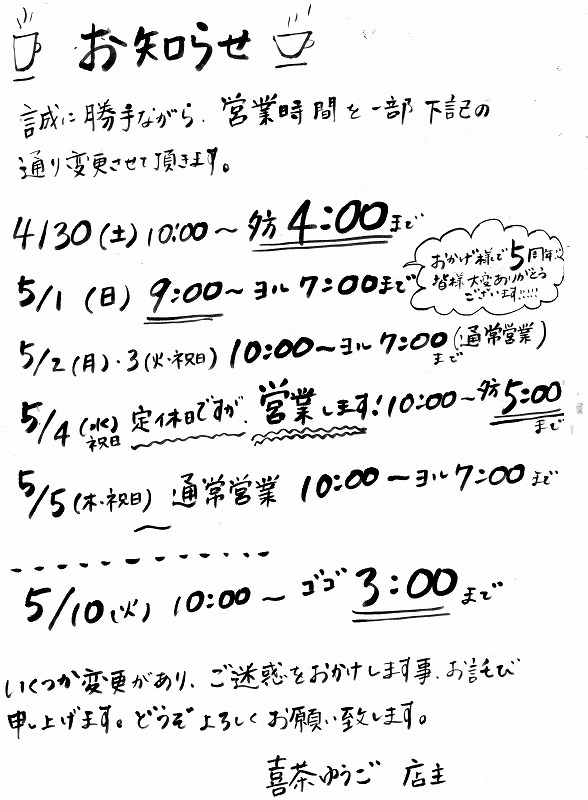 お知らせ
誠に勝手ながら、営業時間を一部下記の
通り変更させて頂きます。
4/30(土)10:00〜夕方4:00まで
おかげ様で5周年!!
皆様大変ありがとう
ございます!!!!!
5/1(日)9:00〜ヨル7:00まで
5/2(月)・3(火・祝日)10:00〜ヨル7:00まで(通常営業)
5/4(水)祝日 定休日ですが、営業します!10:00〜夕方5:00まで
5/5(木・祝日)通常営業 10:00〜ヨル7:00まで
5/10(火)10:00〜ゴゴ3:00まで
いくつか変更があり、ご迷惑をおかけします事、お詫び
申し上げます。どうぞよろしくお願い致します。
喜茶ゆうご 店主